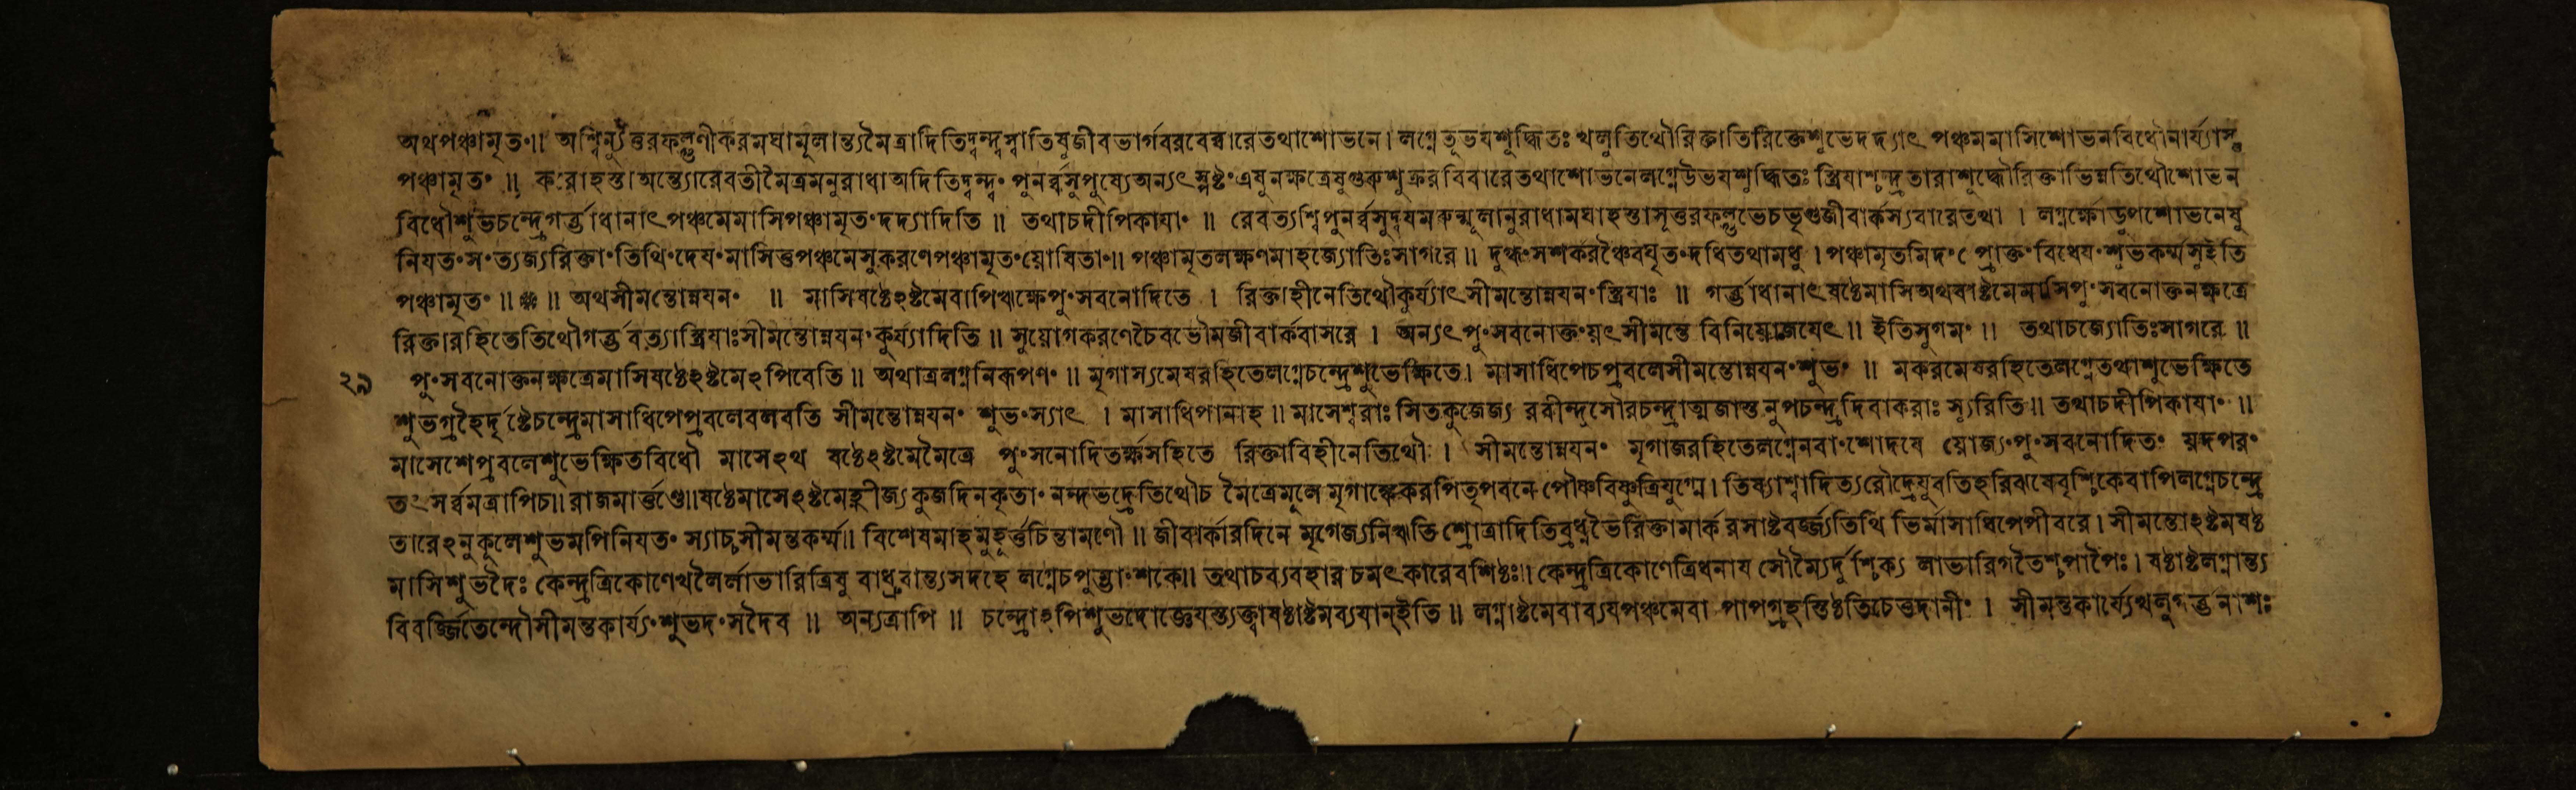 অথপঞ্চামৃতং॥ অশ্বিন্যুত্তরফল্গুণীকরমঘামূলান্ত্যমৈত্রাদিতিদ্বন্দ্বস্বাতিষুজীবভার্গবরবের্ব্বারেতথাশোভনে। লগ্নেতূভযশুদ্ধিতঃ খলুতিথৌরিক্তাতিরিক্তেশুভেদদ্যাৎ পঞ্চমমাসিশোভনবিধৌনার্য্যাস্তু
পঞ্চামৃতং ॥ করোহস্তা অন্ত্যোরেবতীমৈত্রমনুরাধাঅদিতিদ্বন্দ্বং পুনর্ব্বসুপুষ্যেঅন্যৎস্পষ্টংএষুনক্ষত্রেষুগুরুশুক্ররবিবারেতথাশোভনেলগ্নেউভযশুদ্ধিতঃ স্ত্রিযাশ্চন্দ্রতারাশুদ্ধৌরিক্তাভিন্নতিথৌশোভন
বিধৌশুভচন্দ্রেগর্ভাধানাৎপঞ্চমেমাসিপঞ্চামৃতংদদ্যাদিতি ॥ তথাচদীপিকাযাং ॥ রেবত্যশ্বিপুনর্ব্বসুদ্বযমরুন্মূলানুরাধামঘাহস্তাসূত্তরফল্গুভেচভৃগুজীবার্কস্যবারেতথা । লগ্নর্ক্ষোডুপশোভনেষু
নিযতংসংত্যজ্যরিক্তাংতিথিংদেযংমাসিতুপঞ্চমেসুকরণেপঞ্চামৃতংয়োষিতাং॥ পঞ্চামৃতলক্ষণমাহজ্যোতিঃসাগরে ॥ দুগ্ধংসশর্করঞ্চৈবঘৃতংদধিতথামধু । পঞ্চামৃতমিদংপ্রোক্তংবিধেযংশুভকর্ম্মসুইতি
পঞ্চামৃতং ॥ ॥ অথসীমন্তোন্নযনং ॥ মাসিষষ্ঠেঽষ্টমেবাপিঋক্ষেপুংসবনোদিতে । রিক্তাহীনেতিথৌকুর্য্যাৎসীমন্তোন্নযনংস্ত্রিযাঃ ॥ গর্ভাধানাৎষষ্ঠেমাসিঅথবাষ্টমেমাসিপুংসবনোক্তনক্ষত্রে
রিক্তারহিতেতিথৌগর্ভবত্যাস্ত্রিযাঃসীমন্তোন্নযনংকুর্য্যাদিতি ॥ সুয়োগকরণেচৈবভৌমজীবার্কবাসরে । অন্যৎপুংসবনোক্তংয়ৎসীমন্তে বিনিয়োজযেৎ॥ ইতিসুগমং ॥ তথাচজ্যোতিঃসাগরে ॥
২৯ পুংসবনোক্তনক্ষত্রেমাসিষষ্ঠেঽষ্টমেঽপিবেতি ॥ অথাত্রলগ্ননিরূপণং ॥ মৃগাস্যমেষরহিতেলগ্নেচন্দ্রেশুভেক্ষিতে। মাসাধিপেচপ্রবলেসীমন্তোন্নযনংশুভং ॥ মকরমেষরহিতেলগ্নেতথাশুভেক্ষিতে
শুভগ্রহৈর্দৃষ্টেচন্দ্রেমাসাধিপেপ্রবলেবলবতি সীমন্তোন্নযনং শুভংস্যাৎ । মাসাধিপানাহ ॥ মাসেশ্বরাঃ সিতকুজেজ্য রবীন্দুসৌরচন্দ্রাত্মজাস্তনুপচন্দ্রদিবাকরাঃ স্যুরিতি ॥ তথাচদীপিকাযাং ॥
মাসেশেপ্রবলেশুভেক্ষিতবিধৌ মাসেঽথ ষষ্ঠেঽষ্টমেমৈত্রে পুংসনোদিতর্ক্ষসহিতে রিক্তাবিহীনেতিথৌ । সীমন্তোন্নযনং মৃগাজরহিতেলগ্নেনবাংশোদযে য়োজ্যংপুংসবনোদিতং য়দপরং
তৎসর্ব্বমত্রাপিচ॥ রাজমার্ত্তণ্ডে॥ষষ্ঠেমাসেঽষ্টমেহ্নীজ্যকুজদিনকৃতাং নন্দভদ্রেতিথৌচ মৈত্রেমূলে মৃগাঙ্কেকরপিতৃপবনে পৌষ্ণবিষ্ণুত্রিযুগ্মে। তিষ্যাশ্বাদিত্যরৌদ্রেযুবতিহরিঝষেবৃশ্চিকেবাপিলগ্নেচন্দ্রে
তারেঽনুকূলেশুভমপিনিযতং স্যাচ্চসীমন্তকর্ম্ম॥ বিশেষমাহমুহূর্ত্তচিন্তামণৌ ॥ জীবার্কারদিনে মৃগেজ্যনিঋতি শ্রোত্রাদিতিব্রধ্নভৈরিক্তামার্করসাষ্টবর্জ্জ্যতিথি ভির্মাসাধিপেপীবরে। সীমন্তোঽষ্টমষষ্ঠ
মাসিশুভদৈঃ কেন্দ্রত্রিকোণেখলৈর্লাভারিত্রিষু বাধ্রুবান্ত্যসদহে লগ্নেচপুম্ভাংশকে॥ তথাচব্যবহার চমৎকারেবশিষ্ঠঃ॥ কেন্দ্রত্রিকোণেত্রিধনায সৌম্যৈর্দুশ্চিক্য লাভারিগতৈশ্চপাপৈঃ। ষষ্ঠাষ্টলগ্নান্ত্য
বিবর্জ্জিতেন্দৌসীমন্তকার্য্যংশুভদংসদৈব ॥ অন্যত্রাপি ॥ চন্দ্রোঽপিশুভদোজ্ঞেযস্ত্যক্ত্বাষষ্ঠাষ্টমব্যযান্ইতি ॥ লগ্নাষ্টমেবাব্যযপঞ্চমেবা পাপগ্রহস্তিষ্ঠতিচেত্তদানীং । সীমন্তকার্য্যেখলুগর্ভনাশঃ